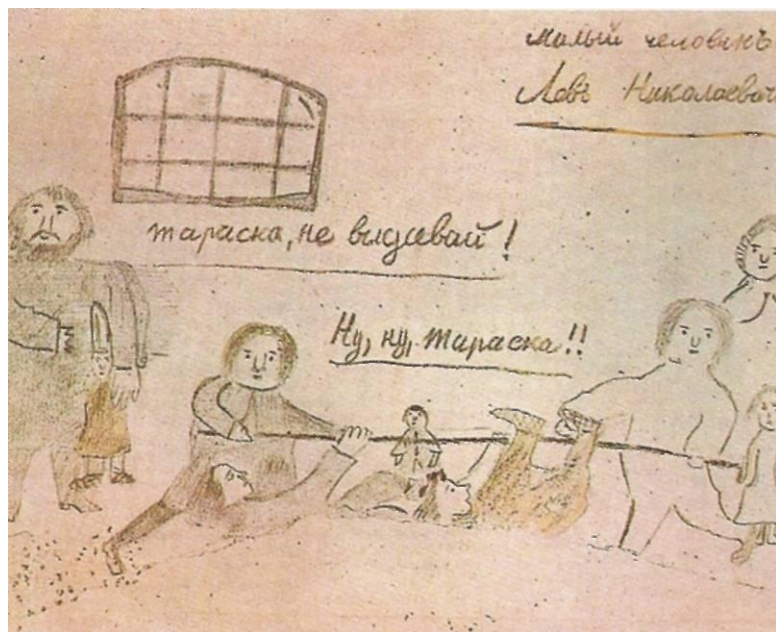 малый человѣкъ
Левъ Николаевич
тараска, не выдавай!
Ну, ну, тараска!!